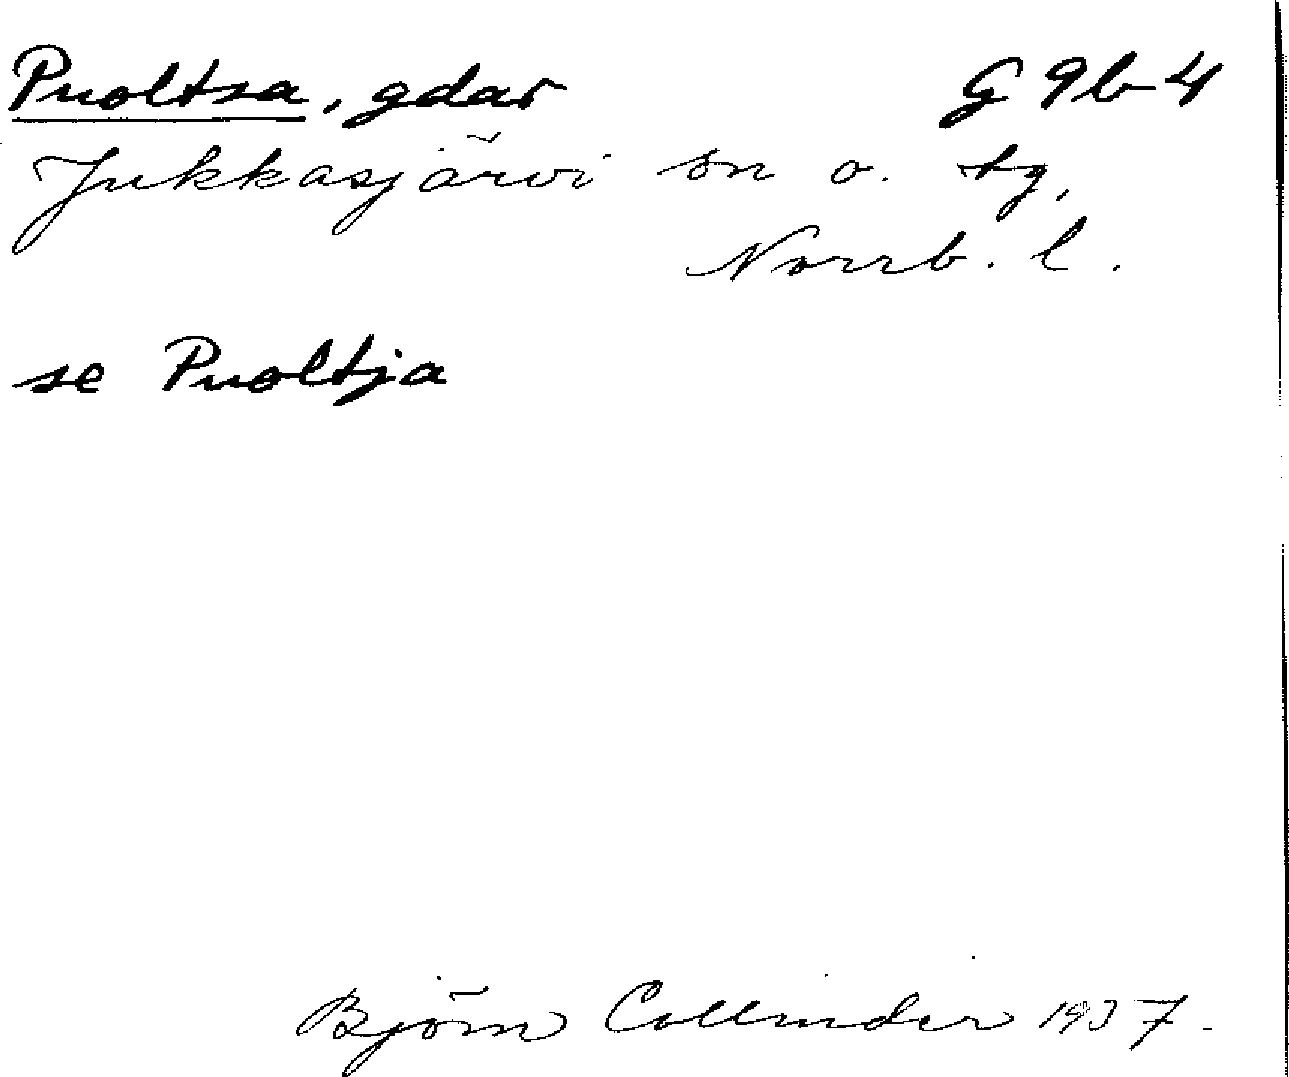 Puoltsa, gdar G 9b 4
Jukkasjärvi sn o. tg,
Norrb. l.
se Puoltja
Björn Collinder 1937.